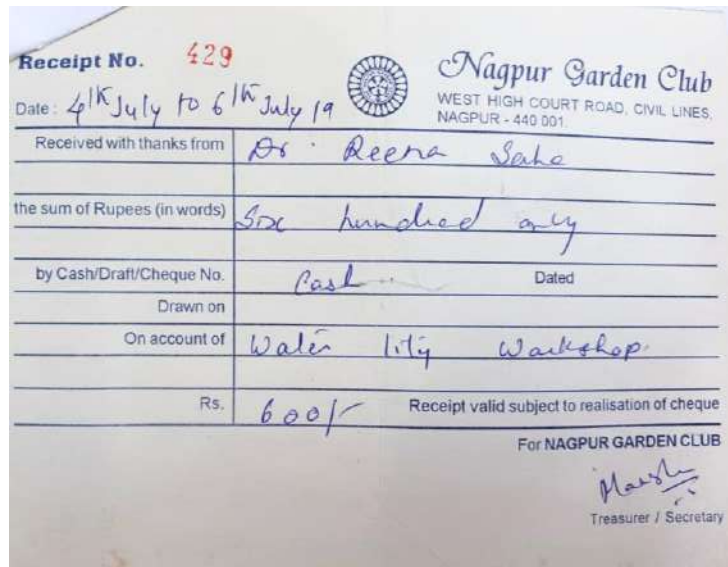 Receipt No. 429
Nagpur Garden Club
WEST HIGH COURT ROAD, CIVIL LINES,
NAGPUR - 440 001.
Date : 4th July to 6th July 19
Received with thanks from Dr. Reena Saha
the sum of Rupees (in words) Six hundred only
by Cash/Draft/Cheque No. Cash Dated
Drawn on
On account of Water lily Workshop.
Rs. 600/- Receipt valid subject to realisation of cheque
For NAGPUR GARDEN CLUB
Treasurer / Secretary